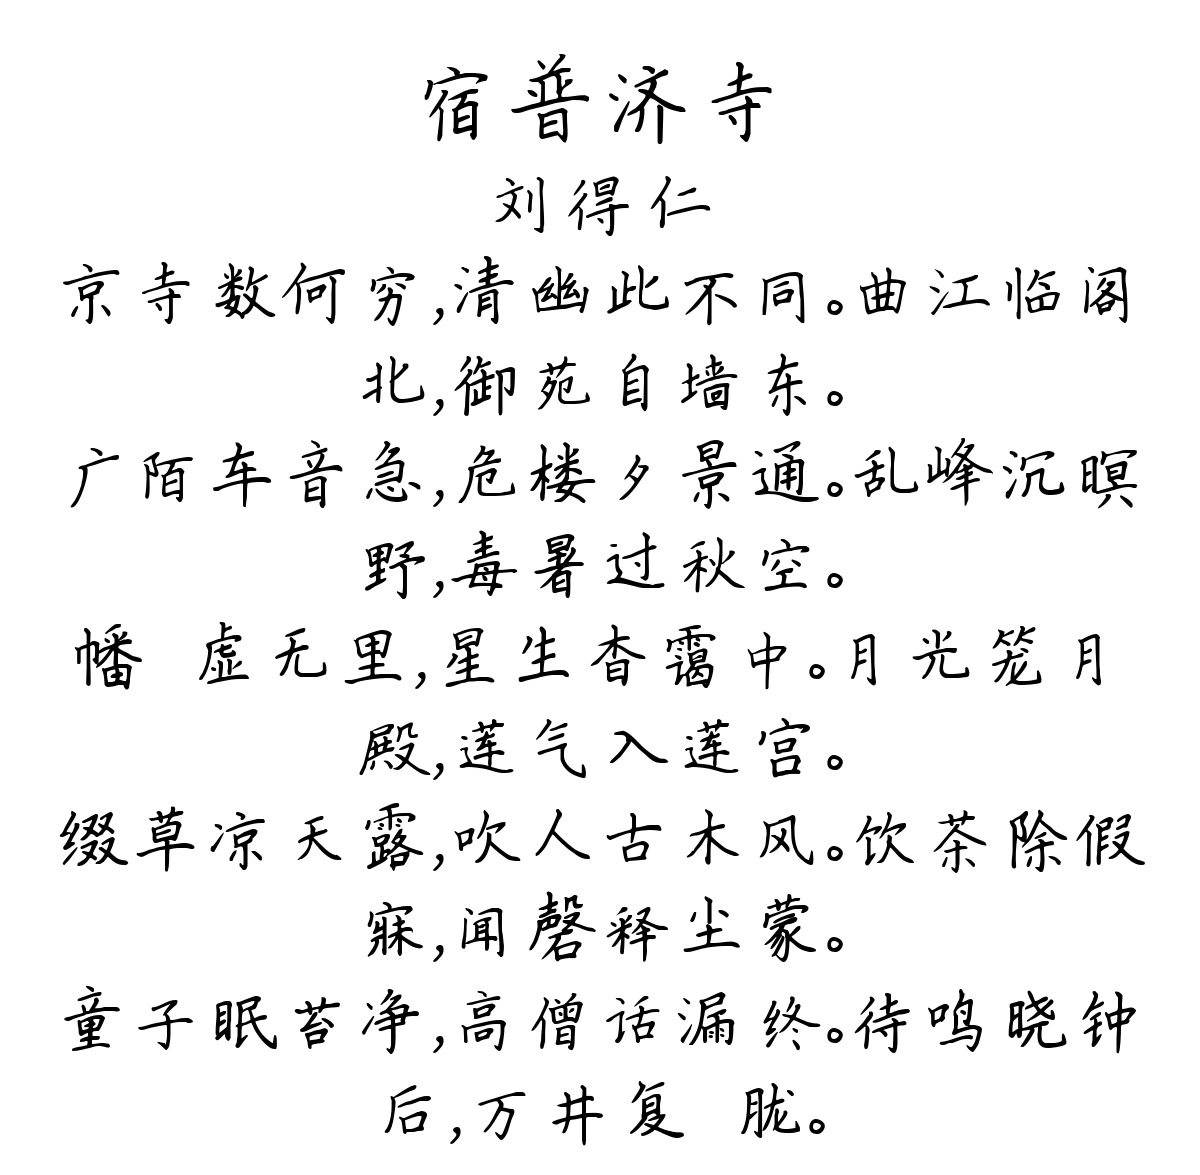 宿普济寺
刘得仁
京寺数何穷,清幽此不同。曲江临阁
北,御苑自墙东。
广陌车音急,危楼夕景通。乱峰沉暝
野,毒暑过秋空。
幡 虚无里,星生杳霭中。月光笼月
殿,莲气入莲宫。
缀草凉天露,吹人古木风。饮茶除假
寐,闻磬释尘蒙。
童子眠苔净,高僧话漏终。待鸣晓钟
后,万井复 胧。